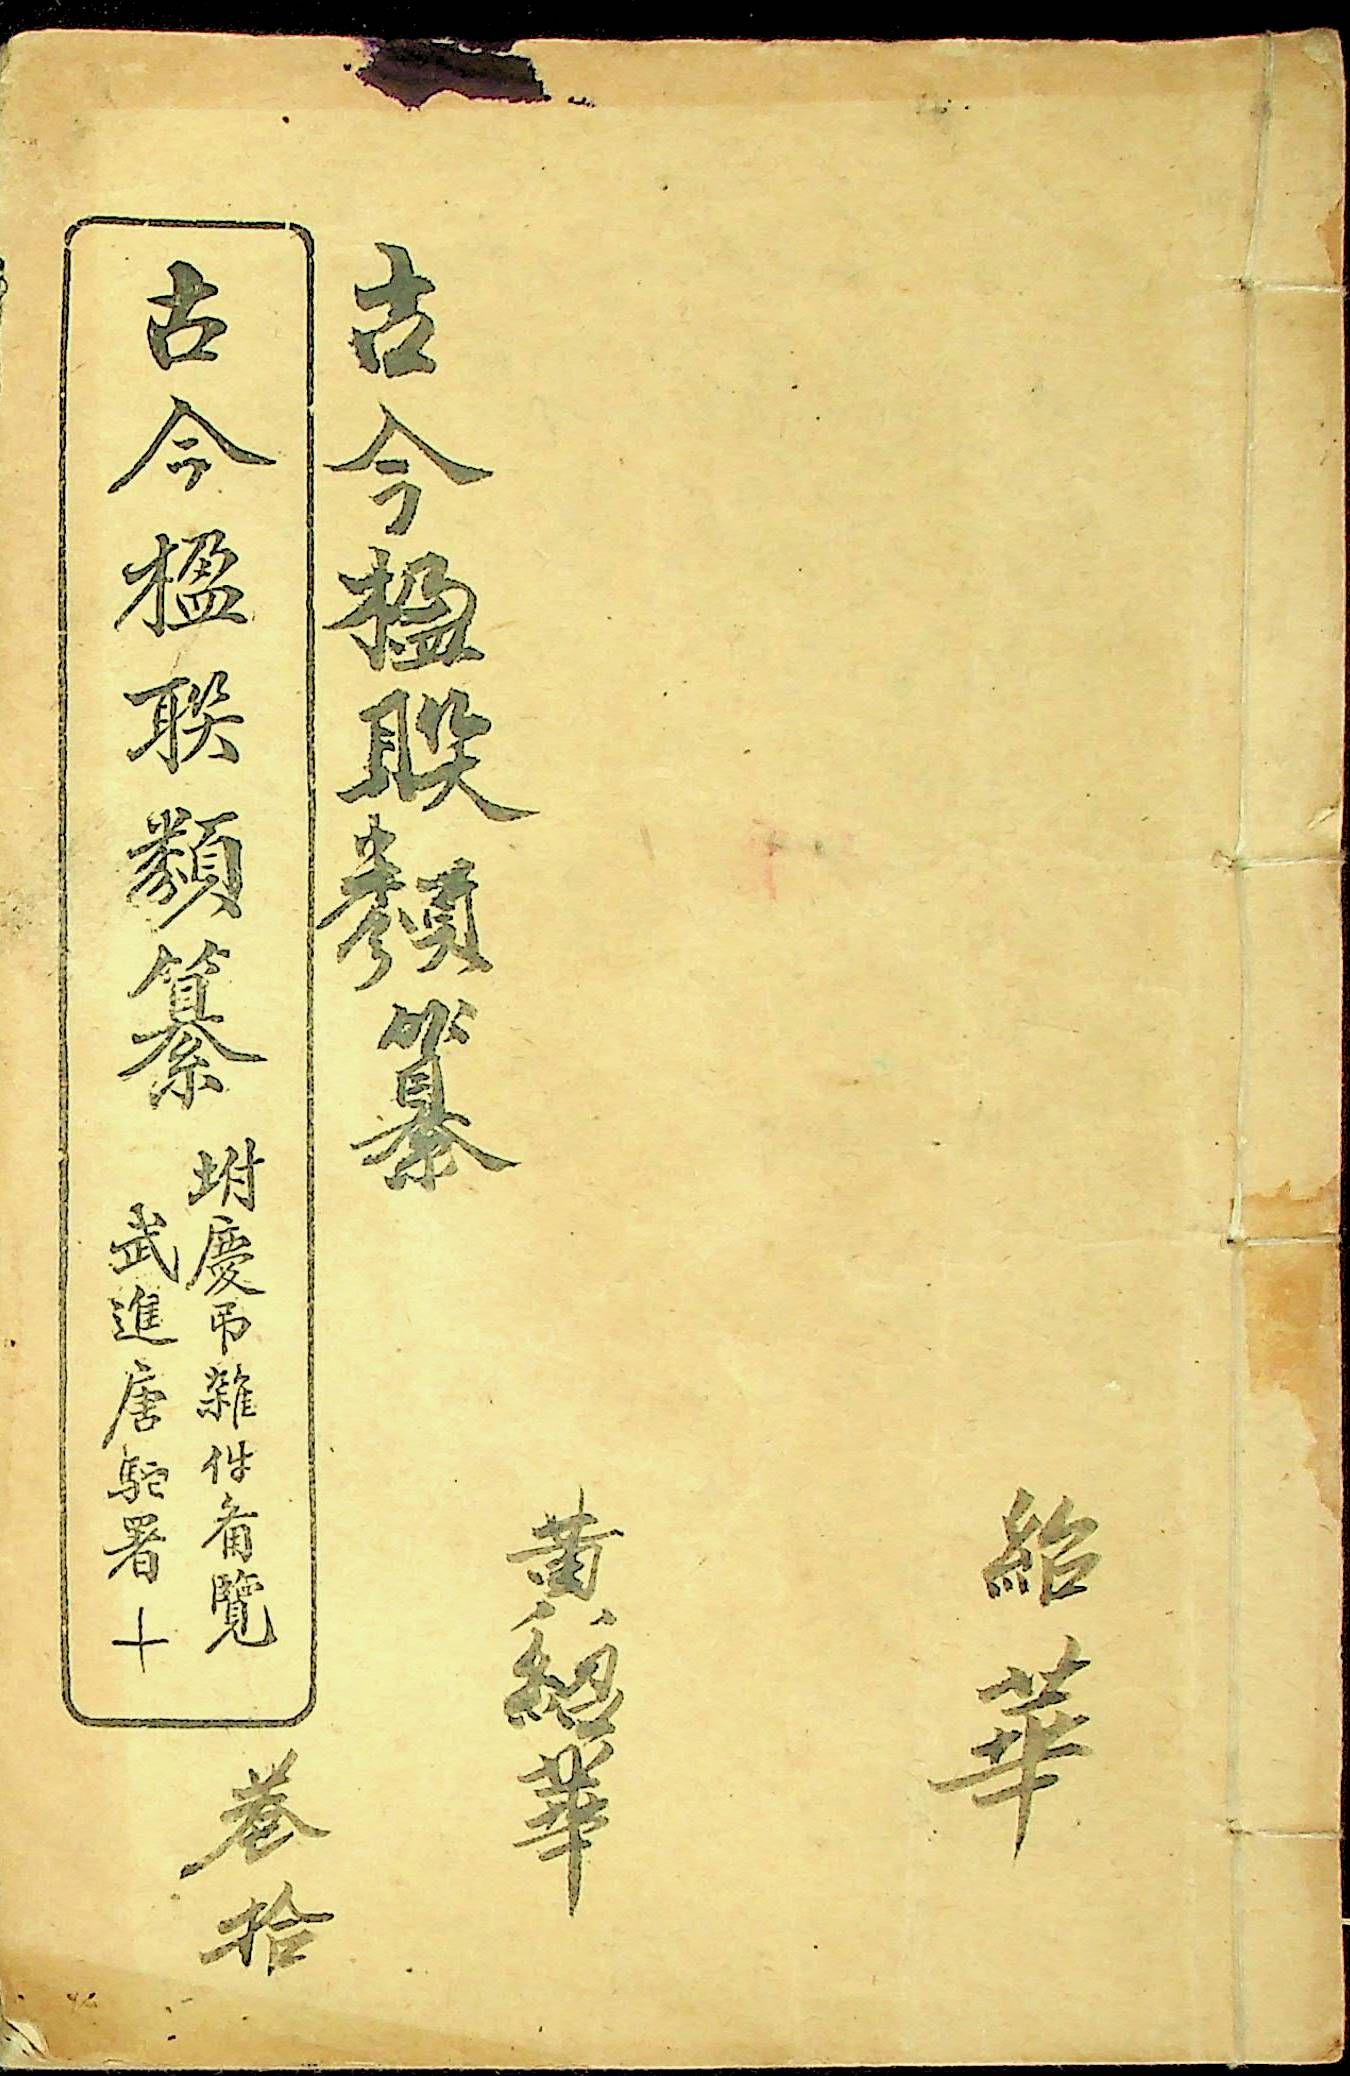 紹華
黃紹華
古今楹聯類纂
古今楹聯類纂
坿慶弔雜件备覽
武進唐駝署
十
卷拾